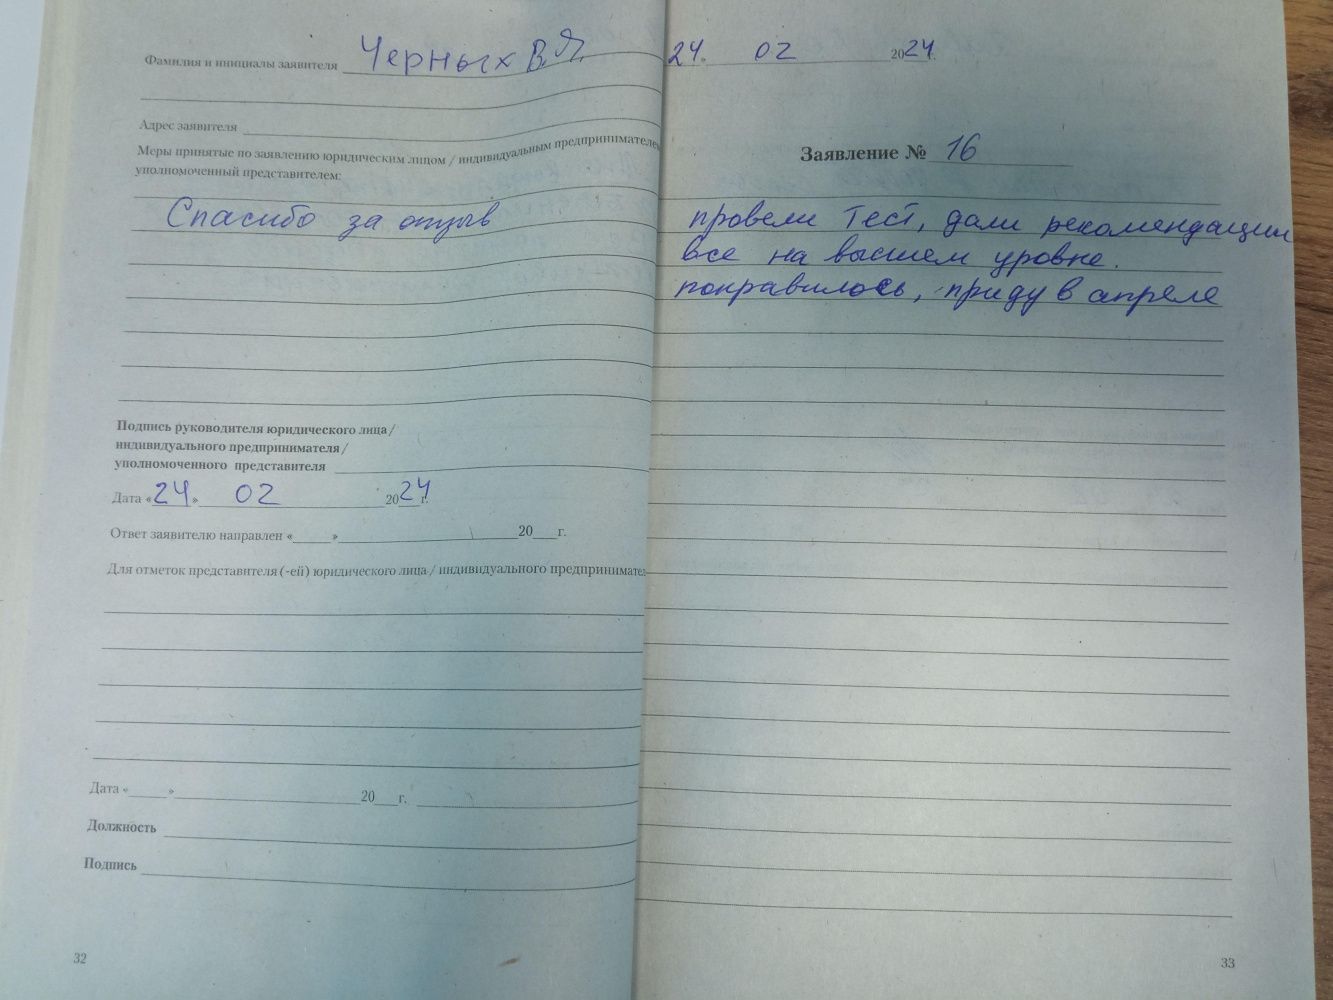 Фамилия и инициалы заявителя Черных В.Я.
Адрес заявителя
Меры принятые по заявлению юридическим лицом / индивидуальным предпринимателем
уполномоченный представителем:
Спасибо за отзыв
Подпись руководителя юридического лица/
индивидуального предпринимателя/
уполномоченного представителя
Дата «24» 02 2024 г.
Ответ заявителю направлен « » 20 г.
Для отметок представителя (-ей) юридического лица / индивидуального предпринимател
Дата « » 20 г.
Должность
Подпись
32
24. 02 2024.
Заявление № 16
провели тест, дали рекомендации
все на высшем уровне.
понравилось, приду в апреле
33